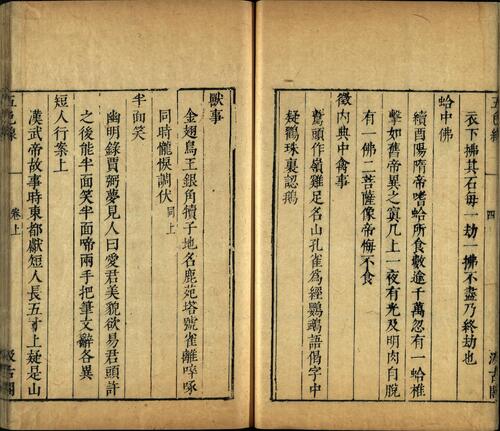 衣下拂其石每一劫一拂不盡乃終劫也
蛤中佛
續酉陽隋帝嗜蛤所食數逾千萬忽有一蛤椎
擊如舊帝異之寘几上一夜有光及明肉自脫
有一佛二菩薩像帝悔不食
徵內典中禽事
鷲頭作嶺雞足名山孔雀爲經鸚鵡語偈字中
疑鸛珠裏認鵝
獸事
金翅鳥王銀角犢子地名鹿苑塔號雀離啐啄
同時儱悷調伏同上
半面笑
幽明錄賈弼夢見人曰愛君美貌欲易君頭許
之後能半面笑半面啼兩手把筆文辭各異
短人行案上
漢武帝故事時東都獻短人長五寸上疑是山
卷上
四